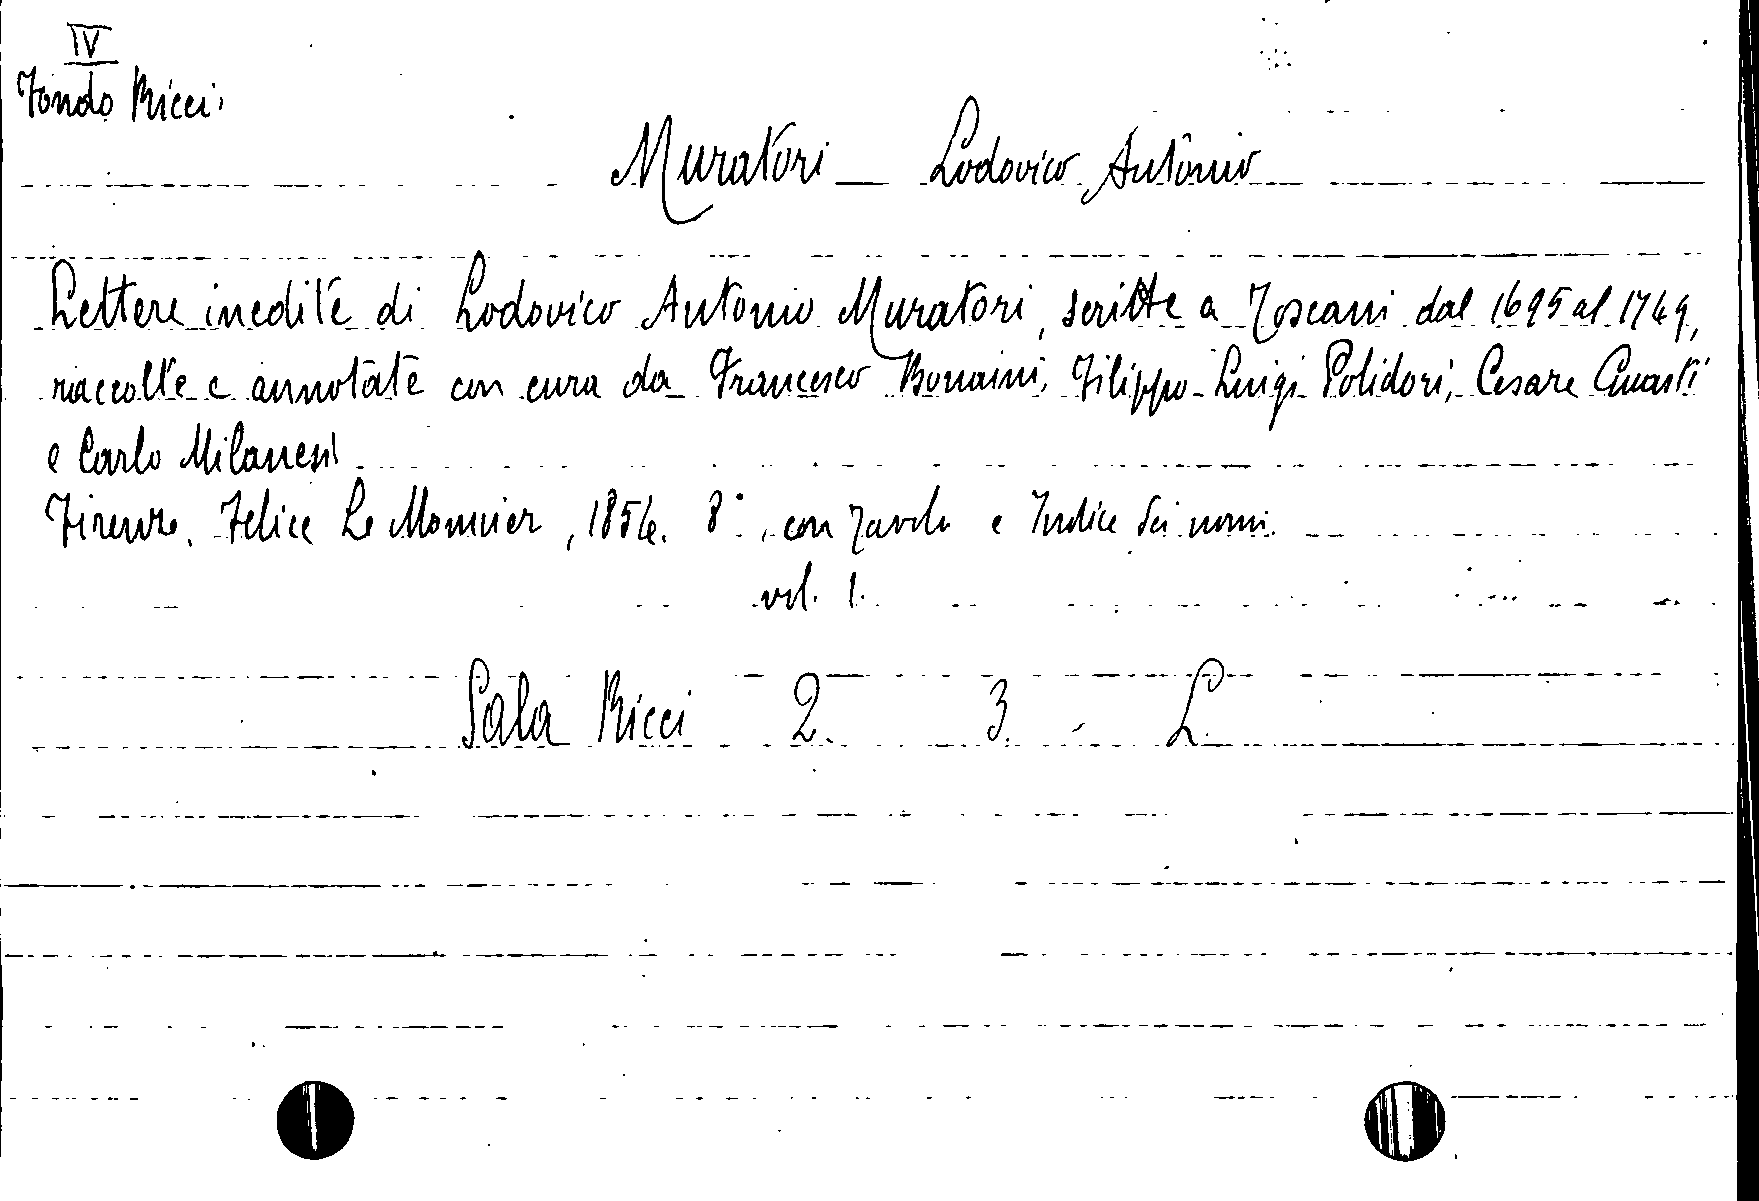 IV
Fondo Ricci.
Muratori Lodovico Antonio
Lettere inedite di Lodovico Antonio Muratori, scritte a Toscani dal 1695 al 1749,
raccolte e annotate con cura da Francesco Bonaini, Filippo-Luigi Polidori, Cesare Guasti
e Carlo Milanesi
Firenze, Felice Le Monnier, 1854. 8°, con Tavola e Indice dei nomi.
vol. 1.
Sala Ricci 2. 3. L.